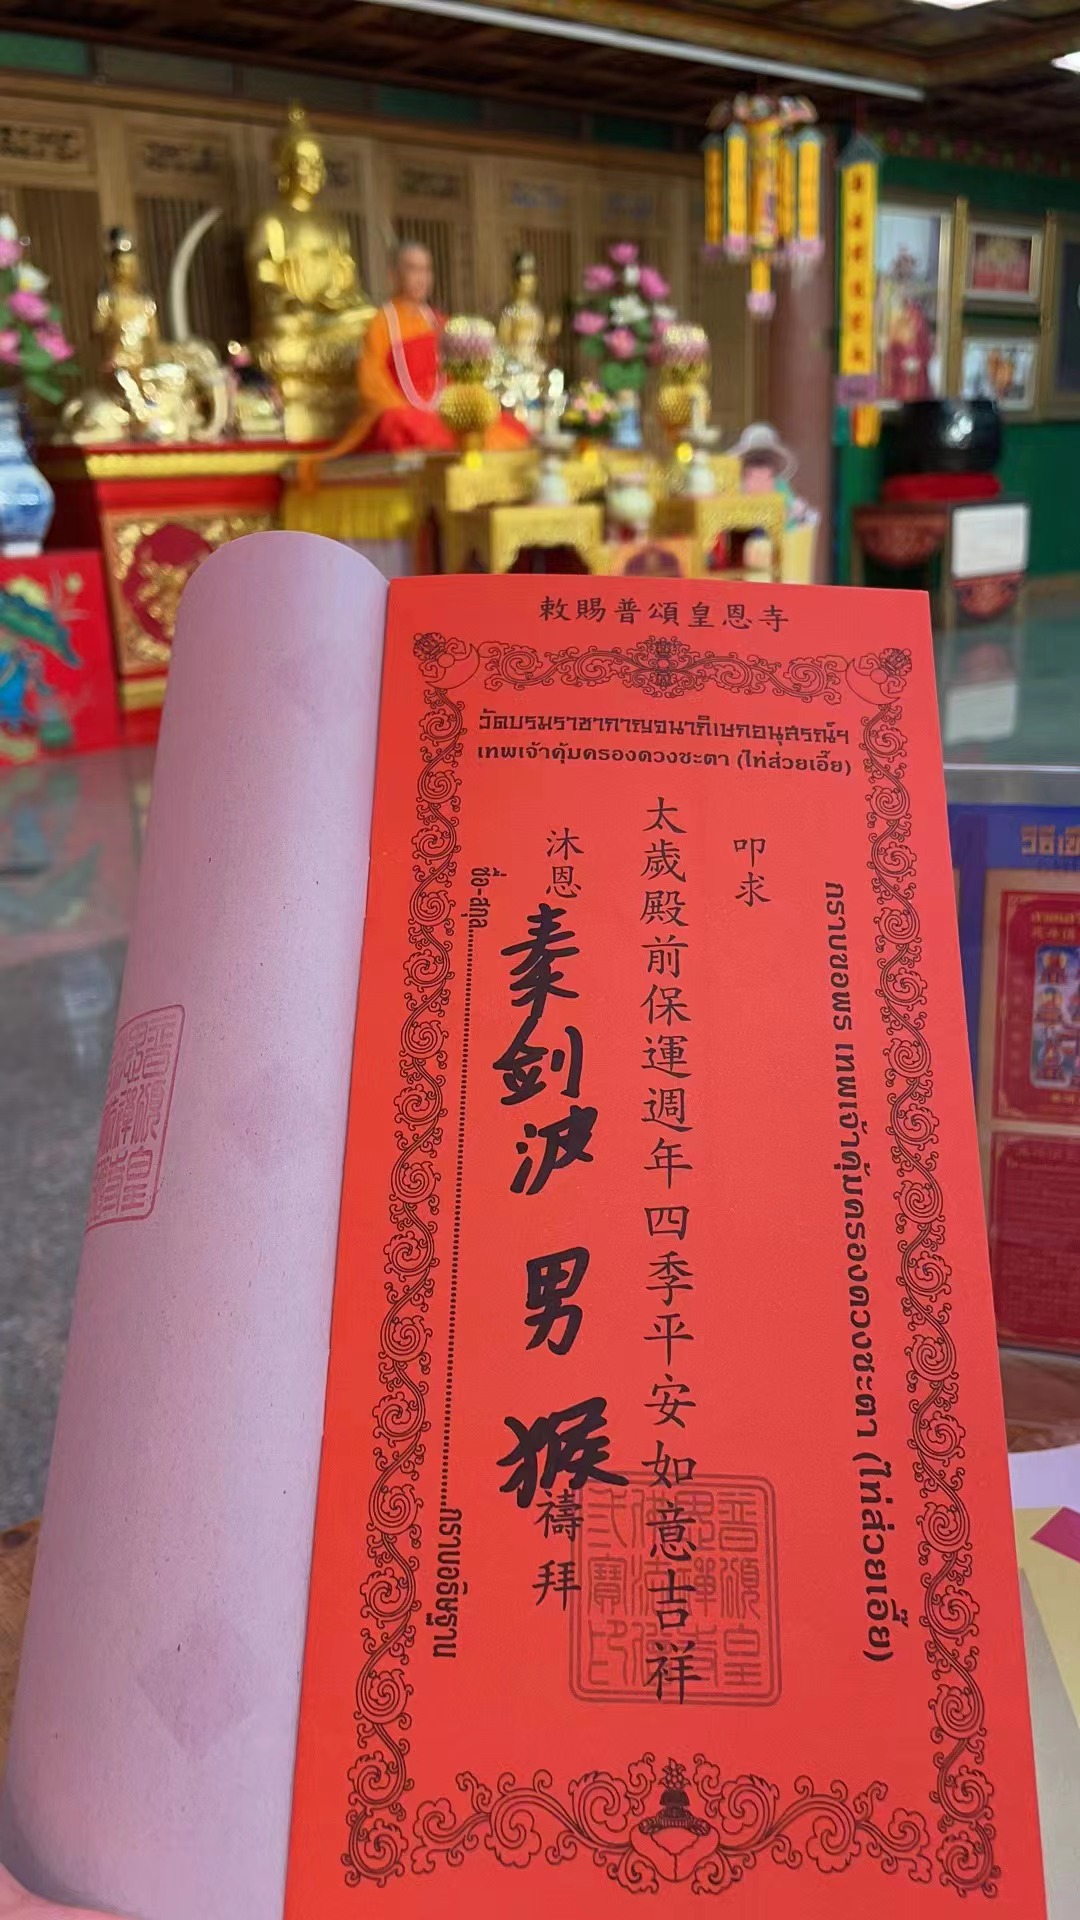 敕賜普頌皇恩寺
วัดบรมราชากาญจนาภิเษกอนุสรณ์ฯ
เทพเจ้าคุ้มครองดวงชะตา (ไท่ส่วยเอี๊ย)
กราบขอพร เทพเจ้าคุ้มครองดวงชะตา (ไท่ส่วยเอี๊ย)
叩求
太歲殿前保運週年四季平安如意吉祥
沐恩 秦剑波 男 猴 禱拜
ชื่อ-สกุล
กราบอธิษฐาน
วิธีเขี